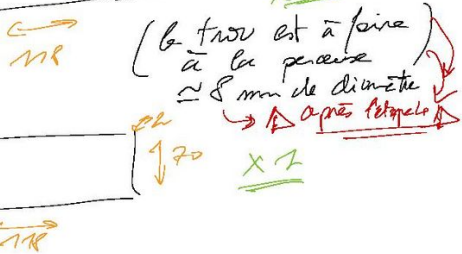 118
(le trou est à faire
à la perceuse
≃ 8 mm de diamètre)
↳ ⚠ après l'étape ⚠
2
70
x 1
118